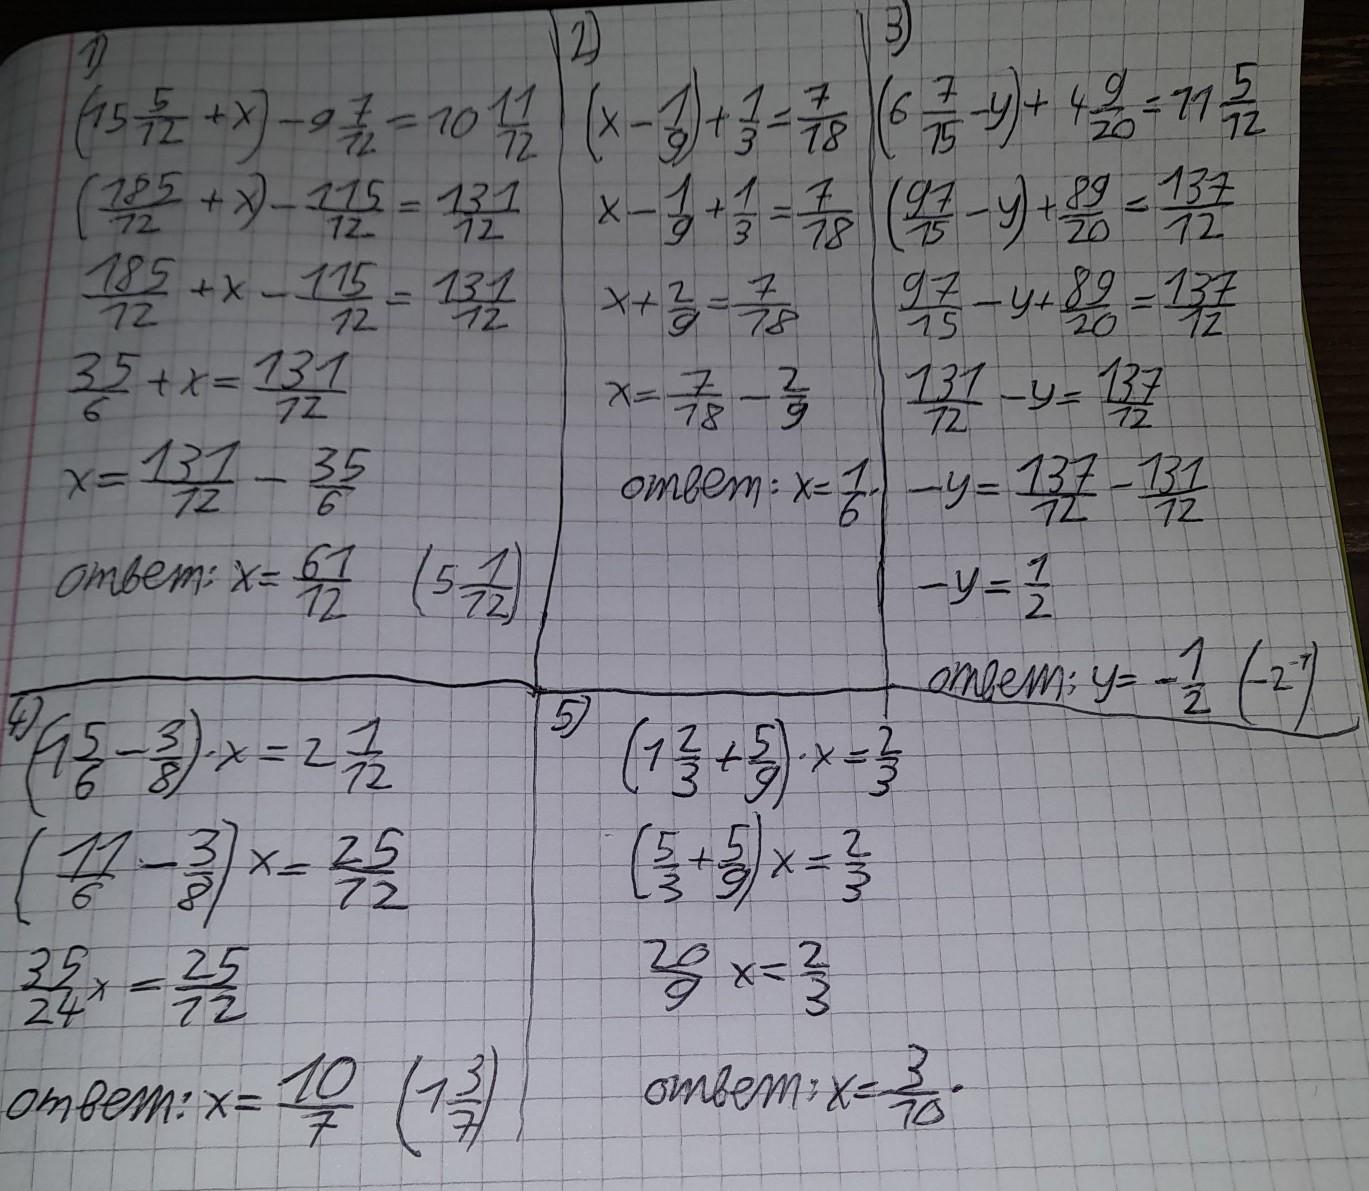 1)
(15 5/12 + x) - 9 7/12 = 10 11/12
(185/12 + x) - 115/12 = 131/12
185/12 + x - 115/12 = 131/12
35/6 + x = 131/12
x = 131/12 - 35/6
ответ: x = 61/12 (5 1/12)
2)
(x - 1/9) + 1/3 = 7/18
x - 1/9 + 1/3 = 7/18
x + 2/9 = 7/18
x = 7/18 - 2/9
ответ: x = 1/6.
3)
(6 7/15 - y) + 4 9/20 = 11 5/12
(97/15 - y) + 89/20 = 137/12
97/15 - y + 89/20 = 137/12
131/12 - y = 137/12
-y = 137/12 - 131/12
-y = 1/2
ответ: y = -1/2 (-2⁻¹)
4) (1 5/6 - 3/8) · x = 2 1/12
(11/6 - 3/8) x = 25/12
35/24 x = 25/12
ответ: x = 10/7 (1 3/7)
5) (1 2/3 + 5/9) · x = 2/3
(5/3 + 5/9) x = 2/3
20/9 x = 2/3
ответ: x = 3/10.